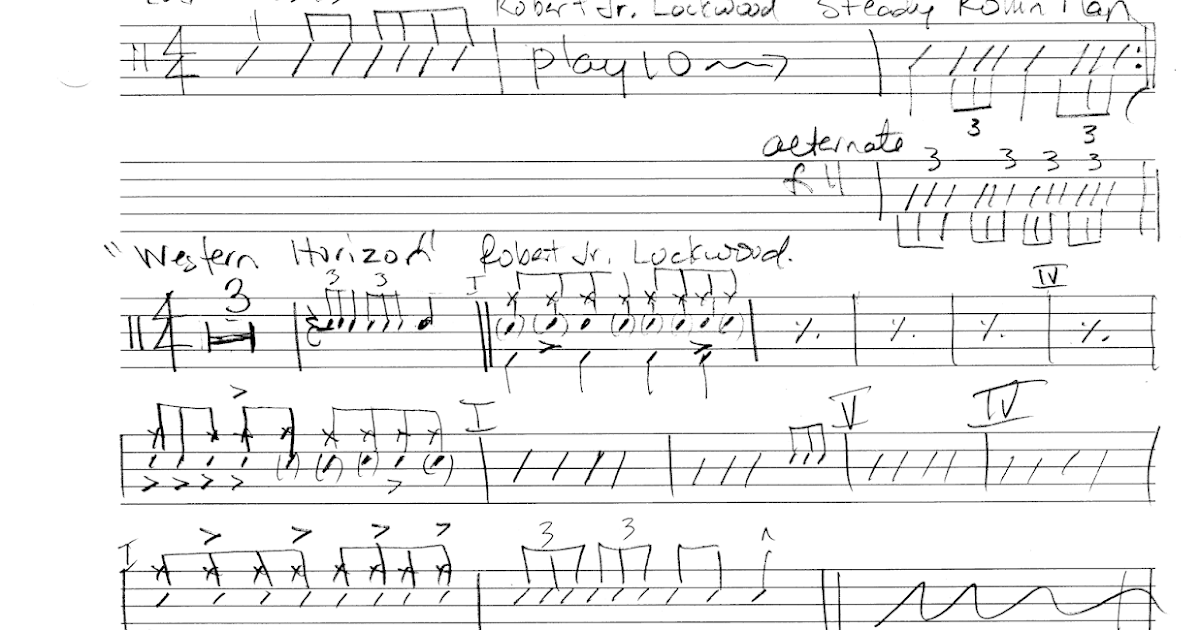 Robert Jr. Lockwood Steady Rollin Man
4 4 play 10
3 3
alternate 3 3 3 3
fill
"Western Horizon" Robert Jr. Lockwood.
3 3 I IV
4 4 3
I V IV
I 3 3